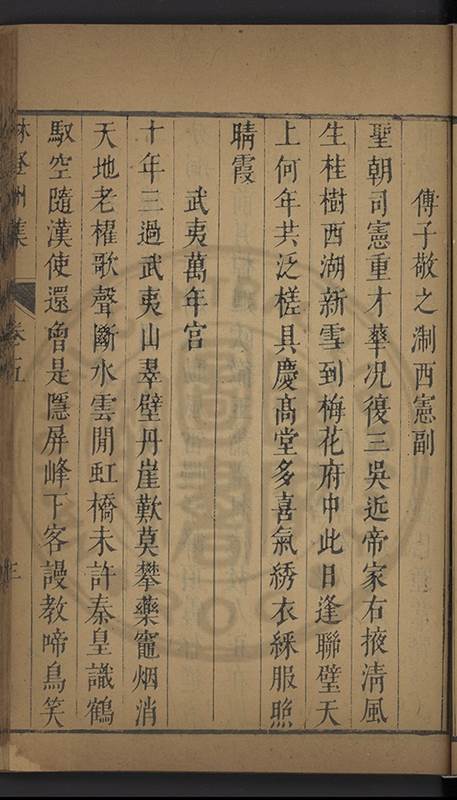 傅子敬之淛西憲副
聖朝司憲重才華况復三吳近帝家右掖淸風
生桂樹西湖新雪到梅花府中此日逢聯璧天
上何年共泛槎具慶髙堂多喜氣綉衣綵服照
晴霞
武夷萬年宫
十年三過武夷山翠壁丹崖歎莫攀藥竈烟消
天地老櫂歌聲斷水雲閒虹橋未許秦皇識鶴
馭空隨漢使還曾是隱屏峰下客謾教啼鳥笑
林登州集 卷五 三